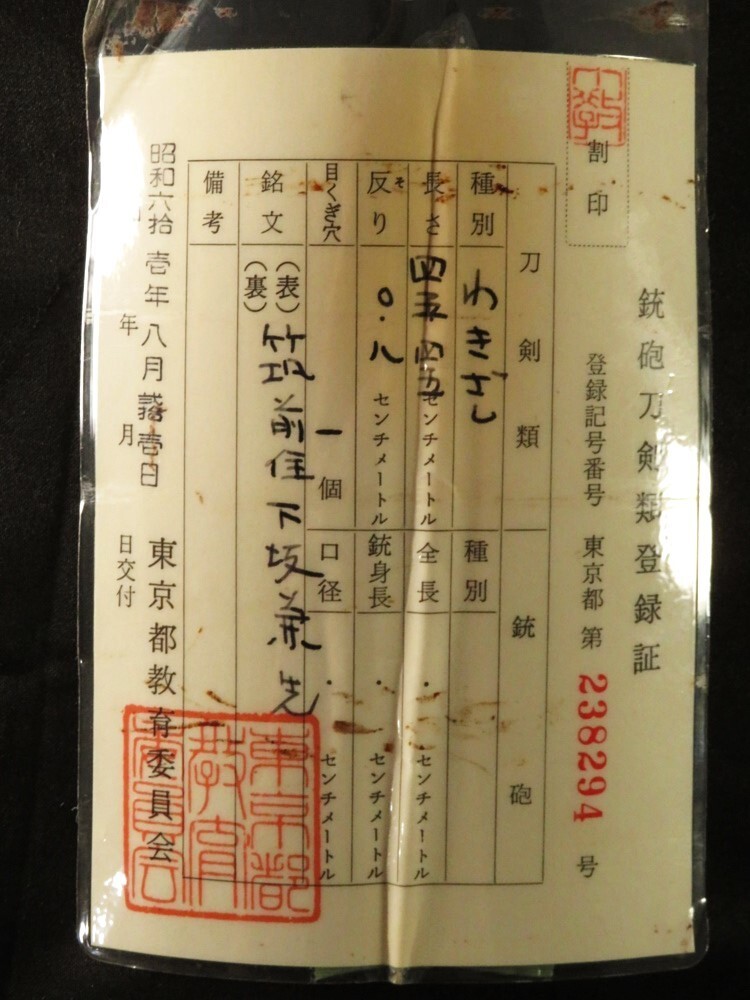 銃砲刀剣類登録証
割印
登録記号番号 東京都 第 238294 号
刀剣類
銃砲
種別 わきざし
種別
長さ 四五.四五 センチメートル
全長 ・ センチメートル
反り そ 〇.八 センチメートル
銃身長 ・ センチメートル
目くぎ穴 一個
口径 ・ センチメートル
銘文 (表) 筑前住下坂兼先
(裏)
備考
昭和六拾壱年八月弐拾壱日
年 月 日交付
東京都教育委員会
東京都教育委員会